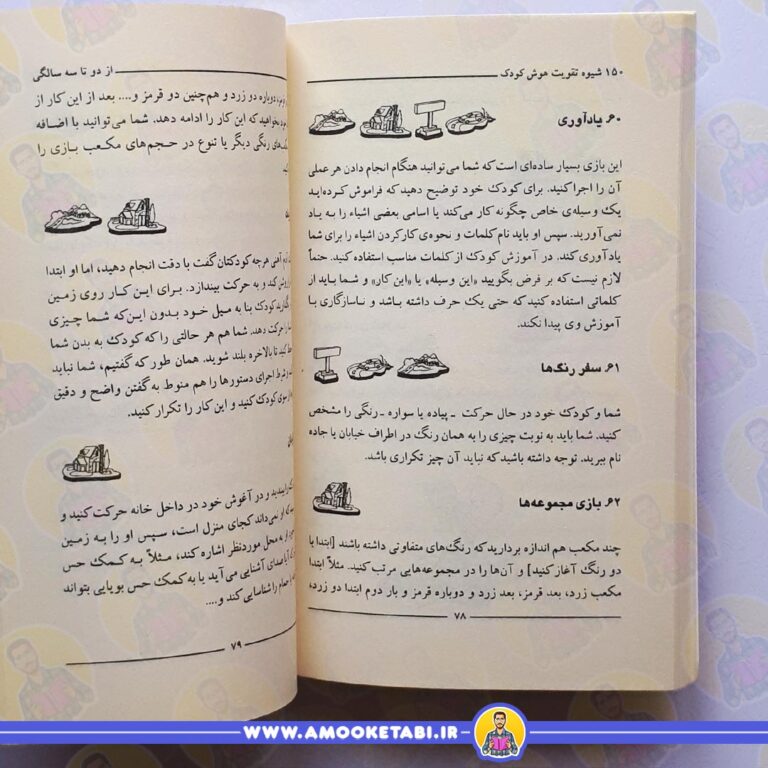 ۱۵۰ شیوه تقویت هوش کودک
۶۰. یادآوری
این بازی بسیار ساده‌ای است که شما می‌توانید هنگام انجام دادن هر عملی
آن را اجرا کنید. برای کودک خود توضیح دهید که فراموش کرده‌اید
یک وسیله‌ی خاص چگونه کار می‌کند یا اسامی بعضی اشیاء را به یاد
نمی‌آورید. سپس او باید نام کلمات و نحوه‌ی کارکردن اشیاء را برای شما
یادآوری کند. در آموزش کودک از کلمات مناسب استفاده کنید. حتماً
لازم نیست که بر فرض بگویید «این وسیله» یا «این کار» و شما باید از
کلماتی استفاده کنید که حتی یک حرف داشته باشد و ناسازگاری با
آموزش وی پیدا نکند.
۶۱. سفر رنگ‌ها
شما و کودک خود در حال حرکت ـ پیاده یا سواره ـ رنگی را مشخص
کنید. شما باید به نوبت چیزی را به همان رنگ در اطراف خیابان یا جاده
نام ببرید. توجه داشته باشید که نباید آن چیز تکراری باشد.
۶۲. بازی مجموعه‌ها
چند مکعب هم اندازه بردارید که رنگ‌های متفاوتی داشته باشند [ابتدا با
دو رنگ آغاز کنید] و آن‌ها را در مجموعه‌هایی مرتب کنید. مثلاً ابتدا
مکعب زرد، بعد قرمز، بعد زرد و دوباره قرمز و بار دوم ابتدا دو زرد،
۷۸
از دو تا سه سالگی
دوباره دو زرد و هم‌چنین دو قرمز و.... بعد از این کار از
بخواهید که این کار را ادامه دهد. شما می‌توانید با اضافه
رنگی دیگر یا تنوع در حجم‌های مکعب بازی را
آهنی هرچه کودکتان گفت با دقت انجام دهید، اما او ابتدا
کند و به حرکت بیندازد. برای این کار روی زمین
کودک بنا به میل خود بدون این‌که شما چیزی
حرکت دهد. شما هم هر حالتی را که کودک به بدن شما
کنید تا بالاخره بلند شوید. همان طور که گفتیم، شما نباید
شرط اجرای دستورها را هم منوط به گفتن واضح و دقیق
سوی کودک کنید و این کار را تکرار کنید.
ببندید و در آغوش خود در داخل خانه حرکت کنید و
او نمی‌داند کجای منزل است، سپس او را به زمین
به محل موردنظر اشاره کند، مثلاً به کمک حس
آیا صدای آشنایی می‌آید یا به کمک حس بویایی بتواند
حمام را شناسایی کند و....
۷۹
WWW.AMOOKETABI.IR